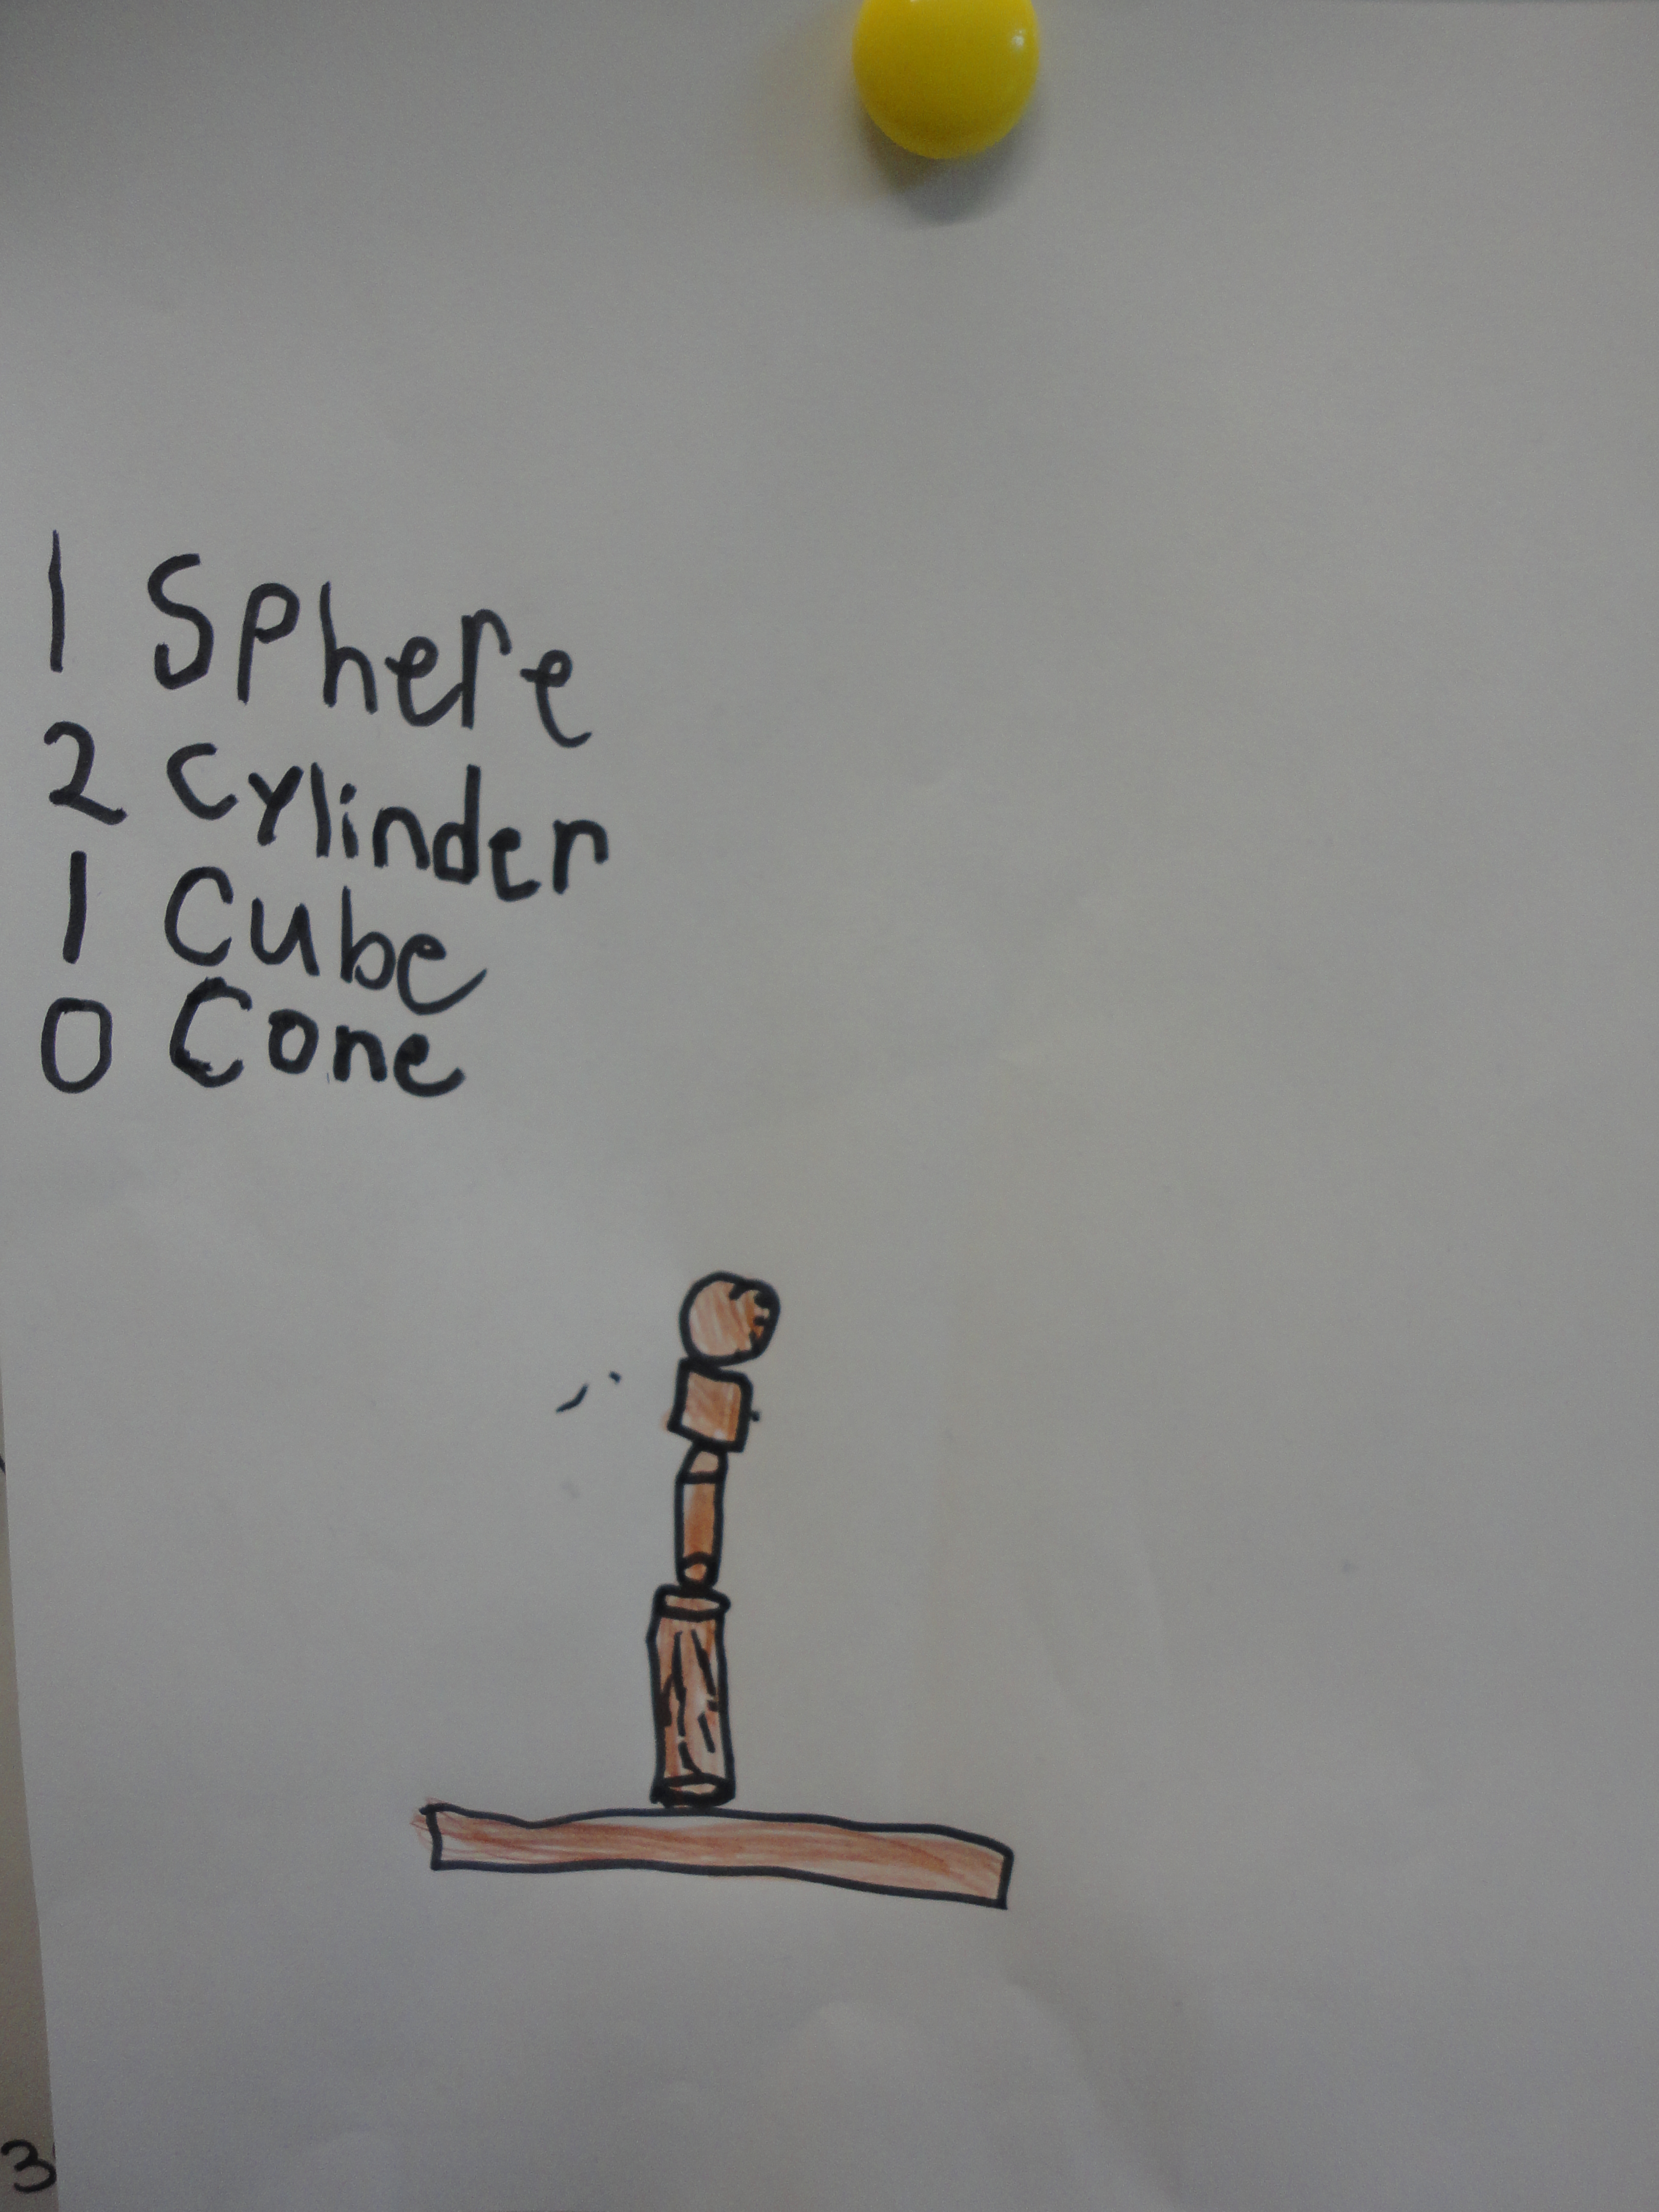 1 Sphere
2 Cylinder
1 Cube
0 Cone
3